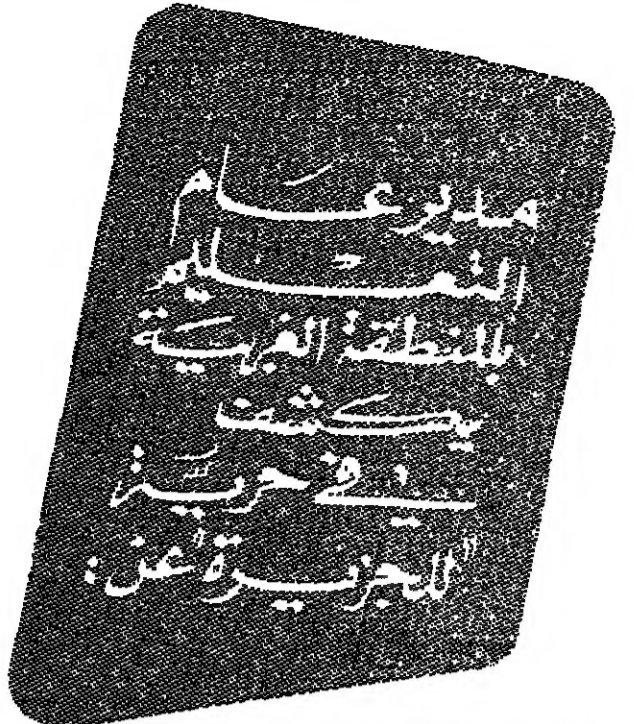 مدير عام
التعليم
بالمنطقة الغربية
يكشف
في حرية
"للجزيرة" عن: